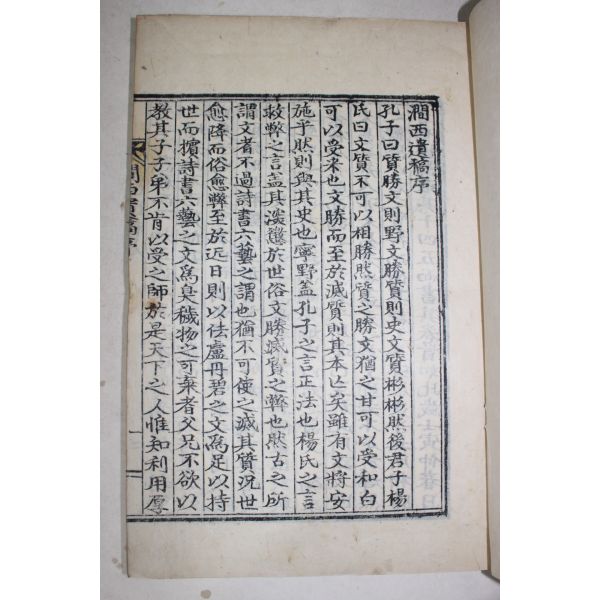 澗西遺稿序
孔子曰質勝文則野文勝質則史文質彬彬然後君子楊
氏曰文質不可以相勝然質之勝文猶之甘可以受和白
可以受采也文勝而至於滅質則其本亡矣雖有文將安
施乎然則與其史也寧野盖孔子之言正法也楊氏之言
救弊之言盖其深懲於世俗文勝滅質之弊也然古之所
謂文者不過詩書六藝之謂也猶不可使之滅其質況世
愈降而俗愈弊至於近日則以佉盧丹碧之文為足以持
世而擯詩書六藝之文為臭穢物之可棄者父兄不欲以
教其子子弟不肯以受之師於是天下之人惟知利用厚
澗西遺稿序